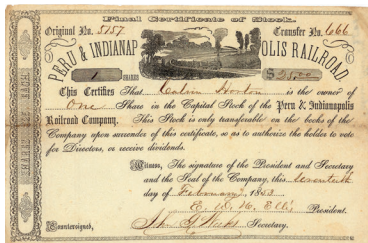 Final Certificate of Stock.
Original No. 5157 Transfer No. 666
PERU & INDIANAPOLIS RAILROAD
1 SHARES $25.00
This Certifies That Calvin Horton is the owner of
One Share in the Capital Stock of the Peru & Indianapolis
Railroad Company. This Stock is only transferable on the books of the
Company upon surrender of this certificate, so as to authorize the holder to vote
for Directors, or receive dividends.
Witness, The signature of the President and Secretary
and the Seal of the Company, this
day of February 1853
E. W. H. Ellis President.
Countersigned, John Secretary.